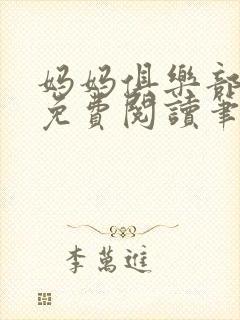 妈妈俱樂部
免費閱讀筆
李萬進